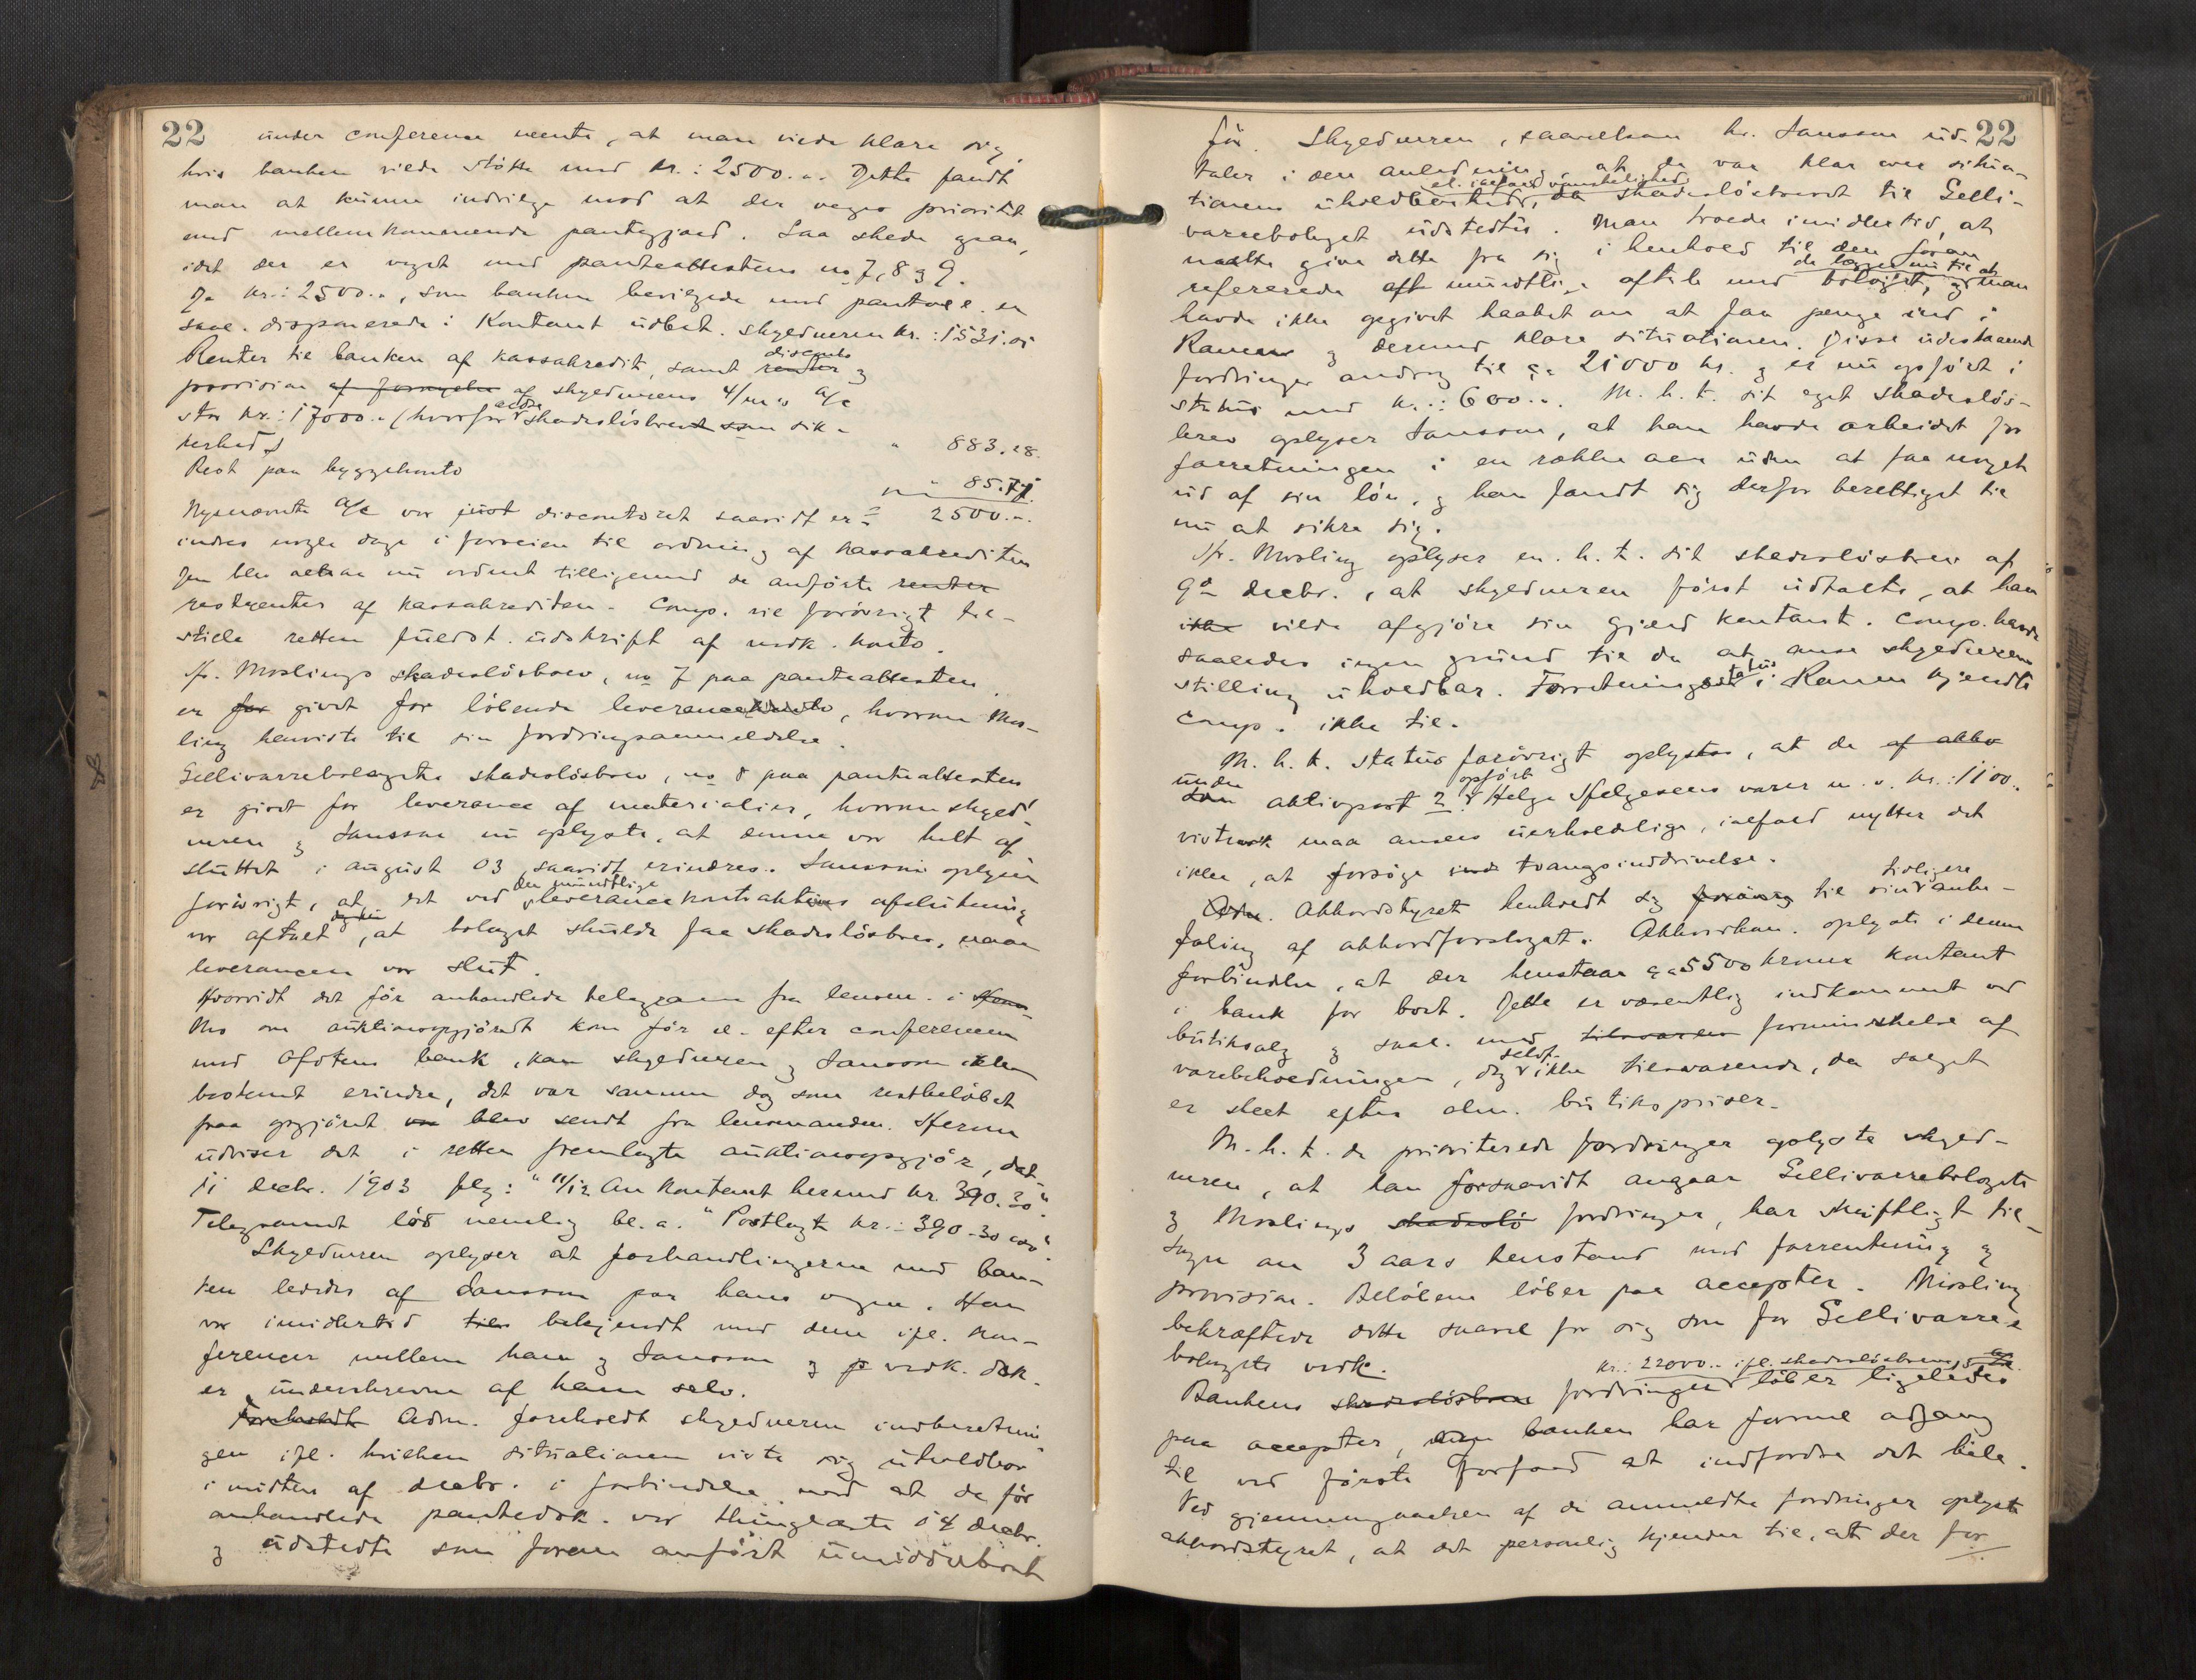 22
under conference mente, at man vilde klare sig,
hvis banken vilde støtte med kr.: 2500.-. Dette fandt
man at kunne indvilge mod at der toges prioritet
med mellemkommende pantegjæld. Saa skede ogsaa,
idet der er veget med panteattestens no 7, 8 og 9.
De kr.: 2500.-, som banken bevilgede mod pantobl. er
saal. disponerede: Kontant udbet. skyldneren kr.: 1531.01
Renter til banken af kassakredit, samt renter disconto og
provision af fornyelse af skyldnerens 4/m a/c
stor kr.: 17000.- (hvorfor ældre skadesløsbrev som sik-
kerhed) " 883.28
Rest paa byggekonto " 85.71
2500.-.
Nysnævnte a/c var just discontoret saavidt er-
indres nogle dage i forveien til ordning af kassakrediten
Den blev altsaa nu ordnet tilligemed de anførte renter
restrenter af kassakrediten. Comp. vil forøvrigt til-
stille retten fuldst. udskrift af vedk. konto.
Hr. Moslings skadesløsbrev, no 7 paa panteattesten,
er for givet for løbende leverancekonto, hvorom Mos-
ling henviste til sin fordringsanmeldelse.
Gellivarrebolagets skadesløsbrev, no 8 paa panteattesten
er givet for leverance af materialier, hvorom skyld-
neren og Jansson nu oplyste, at denne var helt af-
sluttet i august 03, saavidt erindres. Jansson oplyser
forøvrigt, at det ved den mundtlige leverancekontrakts afslutning
var aftalt, at bolaget skulde faa skadesløsbrev, naar
leverancen var slut.
Hvorvidt det før anhandlede telegram fra lensm. i Hem-
Mo om auktionsopgjøret kom før el. efter conferencen
med Ofotens bank, kan skyldneren og Jansson ikke
bestemt erindre, det var samme dag som restbeløbet
paa opgjøret var blev sendt fra lensmanden. Herom
udviser det i retten fremlagte auktionsopgjør, dat.
11 decbr. 1903 flg: "11/12 An Kontant hermed kr. 390.30".
Telegramet lød nemlig bl. a. "Postlagt kr.: 390-30 
Skyldneren oplyser at forhandlingerne med ban-
ken lededes af Jansson paa hans vegne. Han
var imidlertid til bekjendt med dem ifl. kon-
ferencer mellem ham og Jansson og p vedk. dok.
er underskrevne af ham selv.
Foreholdt Adm. foreholdt skyldneren indberetnin-
gen ifl. hvilken situationen viste sig uholdbar
i midten af decbr. i forbindelse med at de før
anhandlede pantedok. var thinglæste 14 decbr.
og udstedte som foran anført umiddelbart
22
før. Skyldneren, saavelsom hr. Jansson ud-
taler i den anledning, at de var klar over situa-
tionens uholdbarhed, el. ialfald vanskelighed, da skadesløsbrevet til Gelli-
varrebolaget udstedtes. Man troede imidlertid, at
maatte give dette fra sig i henhold til den foran
refererede aft mundtlige aftale med bolaget, og man
havde ikke opgivet haabet om at faa penge ind i
Ranen og dermed klare situationen. Disse udestaaende
fordringer androg til ca 21000 kr. og er nu opført i
status med kr.: 600.-. M. h. t. sit eget skadesløs-
brev oplyser Jansson, at han havde arbeidet for
forretningen i en række aar uden at faa noget
ud af sin løn, og han fandt sig derfor berettiget til
nu at sikre sig.
Hr. Mosling oplyser m. h. t. sit skadesløsbrev af
9de decbr., at skyldneren først udtalte, at han
ikke vilde afgjøre sin gjæld kontant. Comp. havde
saaledes ingen grund til da at anse skyldnerens
stilling uholdbar. Forretningsstatus i Ranen kjendte
comp. ikke til.
M. h. t. status forøvrigt oplystes, at de af akko
under den aktivpost 2 opført Helge Helgesens varer m. v. kr.: 1100.-
vistnok maa ansees uerholdelige, ialfald nytter det
ikke, at forsøge ind tvangsinddrivelse.
Adm. Akkordstyret henholdt sig forøvrig til sin tidligere anbe-
faling af akkordforslaget. Akkordkom. oplyste i denne
forbindelse, at der henstaar ca 5500 kroner kontant
i bank for boet. Dette er væsentlig indkommet ved
butiksalg og saal. med tilsvarende formindskelse af
varebeholdningen, dog selvf. ikke tilsvarende, da salget
er skeet efter alm. butikspriser.
M. h. t. de prioriterede fordringer oplyste skyld-
neren, at han forsaavidt angaar Gellivarrebolagets
og Moslings skadeslø fordringer, har skriftligt til-
sagn om 3 aars henstand mod forrentning og
provision. Beløbene løber paa accepter. Mosling
bekræftede dette saavel for sig som for Gellivarre-
bolagets vedk.
Bankens skadesløsbrev fordringer kr.: 22000.- ifl. skadesløsbreve løber ligeledes
paa accepter, men banken har formel adgang
til ved første forfald at indfordre det hele.
Ved gjennemgaaelsen af de anmeldte fordringer oplyste
akkordstyret, at det personlig kjender til, at der for